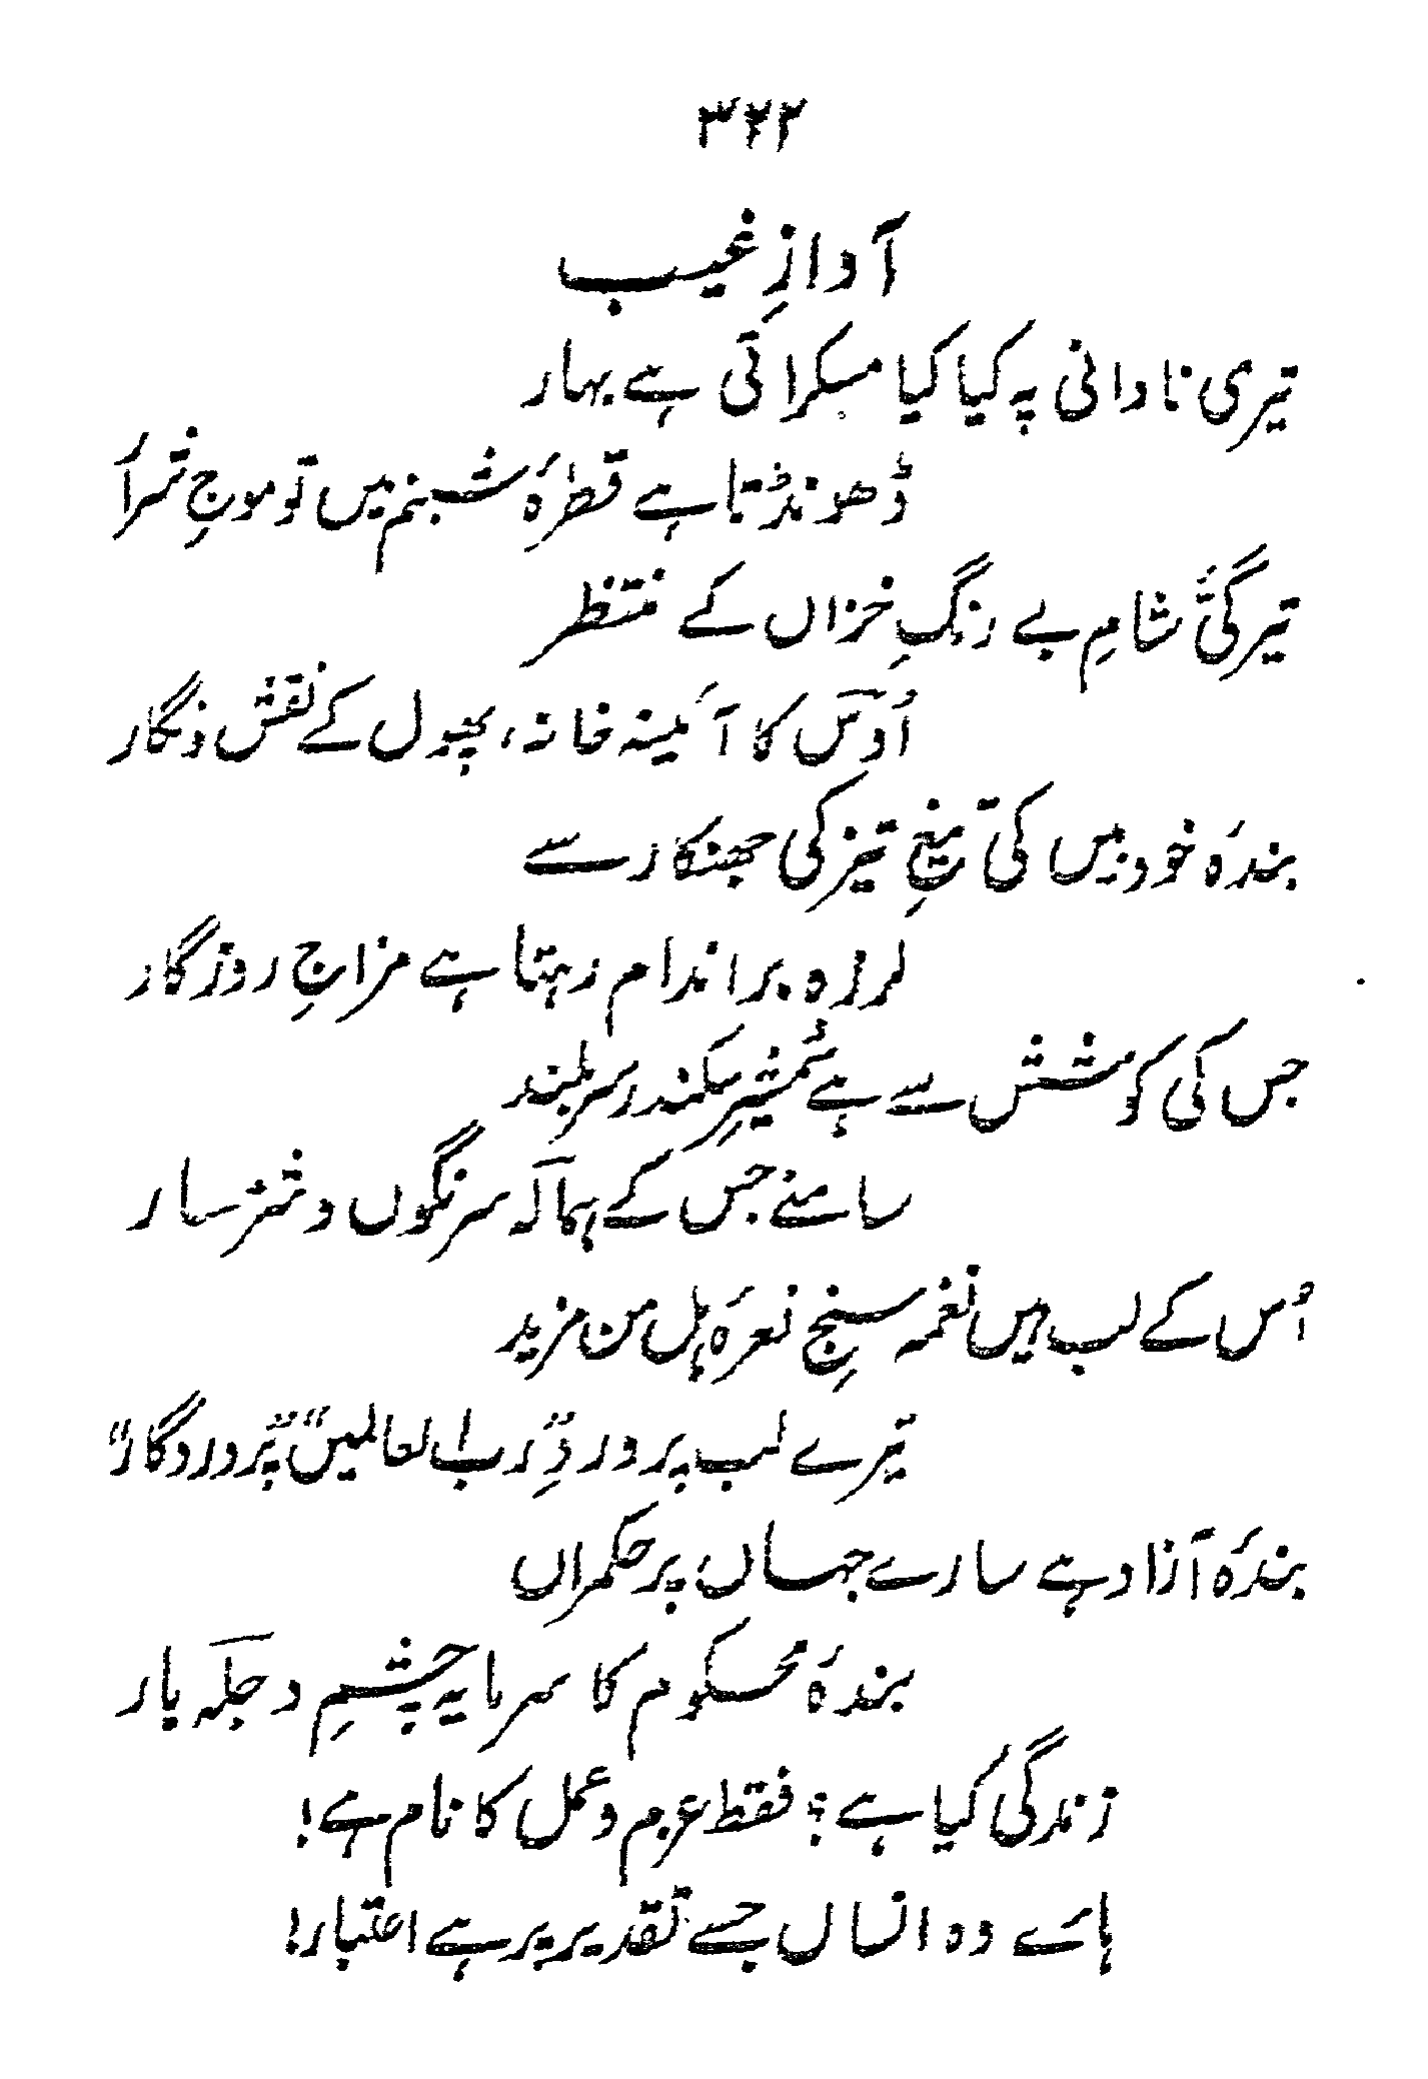 ۳۲۲
آوازِ غیب
تیری نادانی پہ کیا کیا مسکراتی ہے بہار
ڈھونڈتا ہے قطرۂ شبنم میں تو موجِ شرار
تیرگیٔ شامِ بے رنگِ خزاں کے منتظر
اُوس کا آئینہ خانہ، پھول کے نقش و نگار
بندۂ خود بیں کی تیغِ تیز کی جھنکار سے
لرزہ بر اندام رہتا ہے مزاجِ روزگار
جس کی کوشش سے ہے شمشیرِ سکندر سربلند
سامنے جس کے ہمالہ سرنگوں و شرمسار
اُس کے لب ہیں نغمہ سنجِ نعرۂ ہل من مزید
تیرے لب پر وردِ "رب العالمیں" "پروردگار"
بندۂ آزاد ہے سارے جہاں پر حکمراں
بندۂ محکوم کا سرمایہ چشمِ دجلہ بار
زندگی کیا ہے؟ فقط عزم و عمل کا نام ہے!
ہائے وہ انساں جسے تقدیر پر ہے اعتبار!